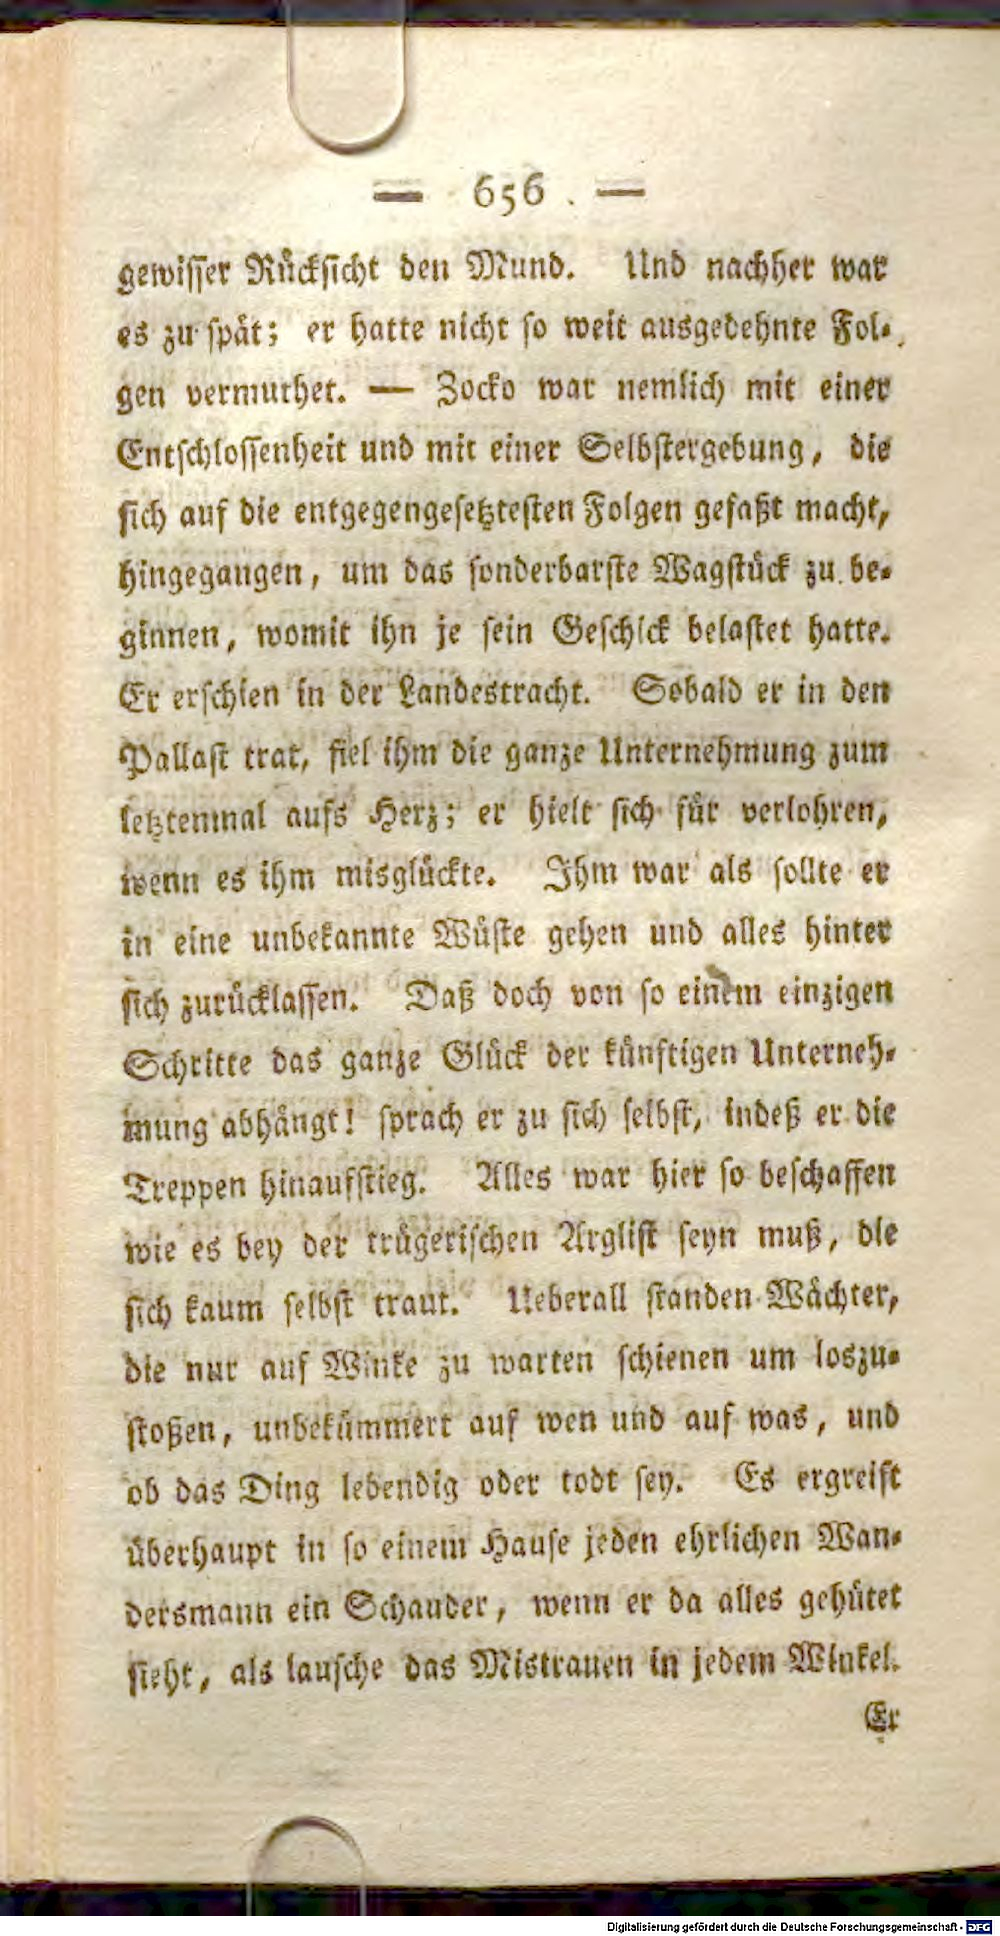 — 656 . —
gewisser Rücksicht den Mund. Und nachher war
es zu spät; er hatte nicht so weit ausgedehnte Fol-
gen vermuthet. — Zocko war nemlich mit einer
Entschlossenheit und mit einer Selbstergebung, die
sich auf die entgegengesetztesten Folgen gefaßt macht,
hingegangen, um das sonderbarste Wagstück zu be-
ginnen, womit ihn je sein Geschick belastet hatte.
Er erschien in der Landestracht. Sobald er in den
Pallast trat, fiel ihm die ganze Unternehmung zum
letztenmal aufs Herz; er hielt sich für verlohren,
wenn es ihm misglückte. Ihm war als sollte er
in eine unbekannte Wüste gehen und alles hinter
sich zurücklassen. Daß doch von so einem einzigen
Schritte das ganze Glück der künftigen Unterneh-
mung abhängt! sprach er zu sich selbst, indeß er die
Treppen hinaufstieg. Alles war hier so beschaffen
wie es bey der trügerischen Arglist seyn muß, die
sich kaum selbst traut. Ueberall standen Wächter,
die nur auf Winke zu warten schienen um loszu-
stoßen, unbekümmert auf wen und auf was, und
ob das Ding lebendig oder todt sey. Es ergreift
überhaupt in so einem Hause jeden ehrlichen Wan-
dersmann ein Schauder, wenn er da alles gehütet
sieht, als lausche das Mistrauen in jedem Winkel.
Er
Digitalisierung gefördert durch die Deutsche Forschungsgemeinschaft - DFG